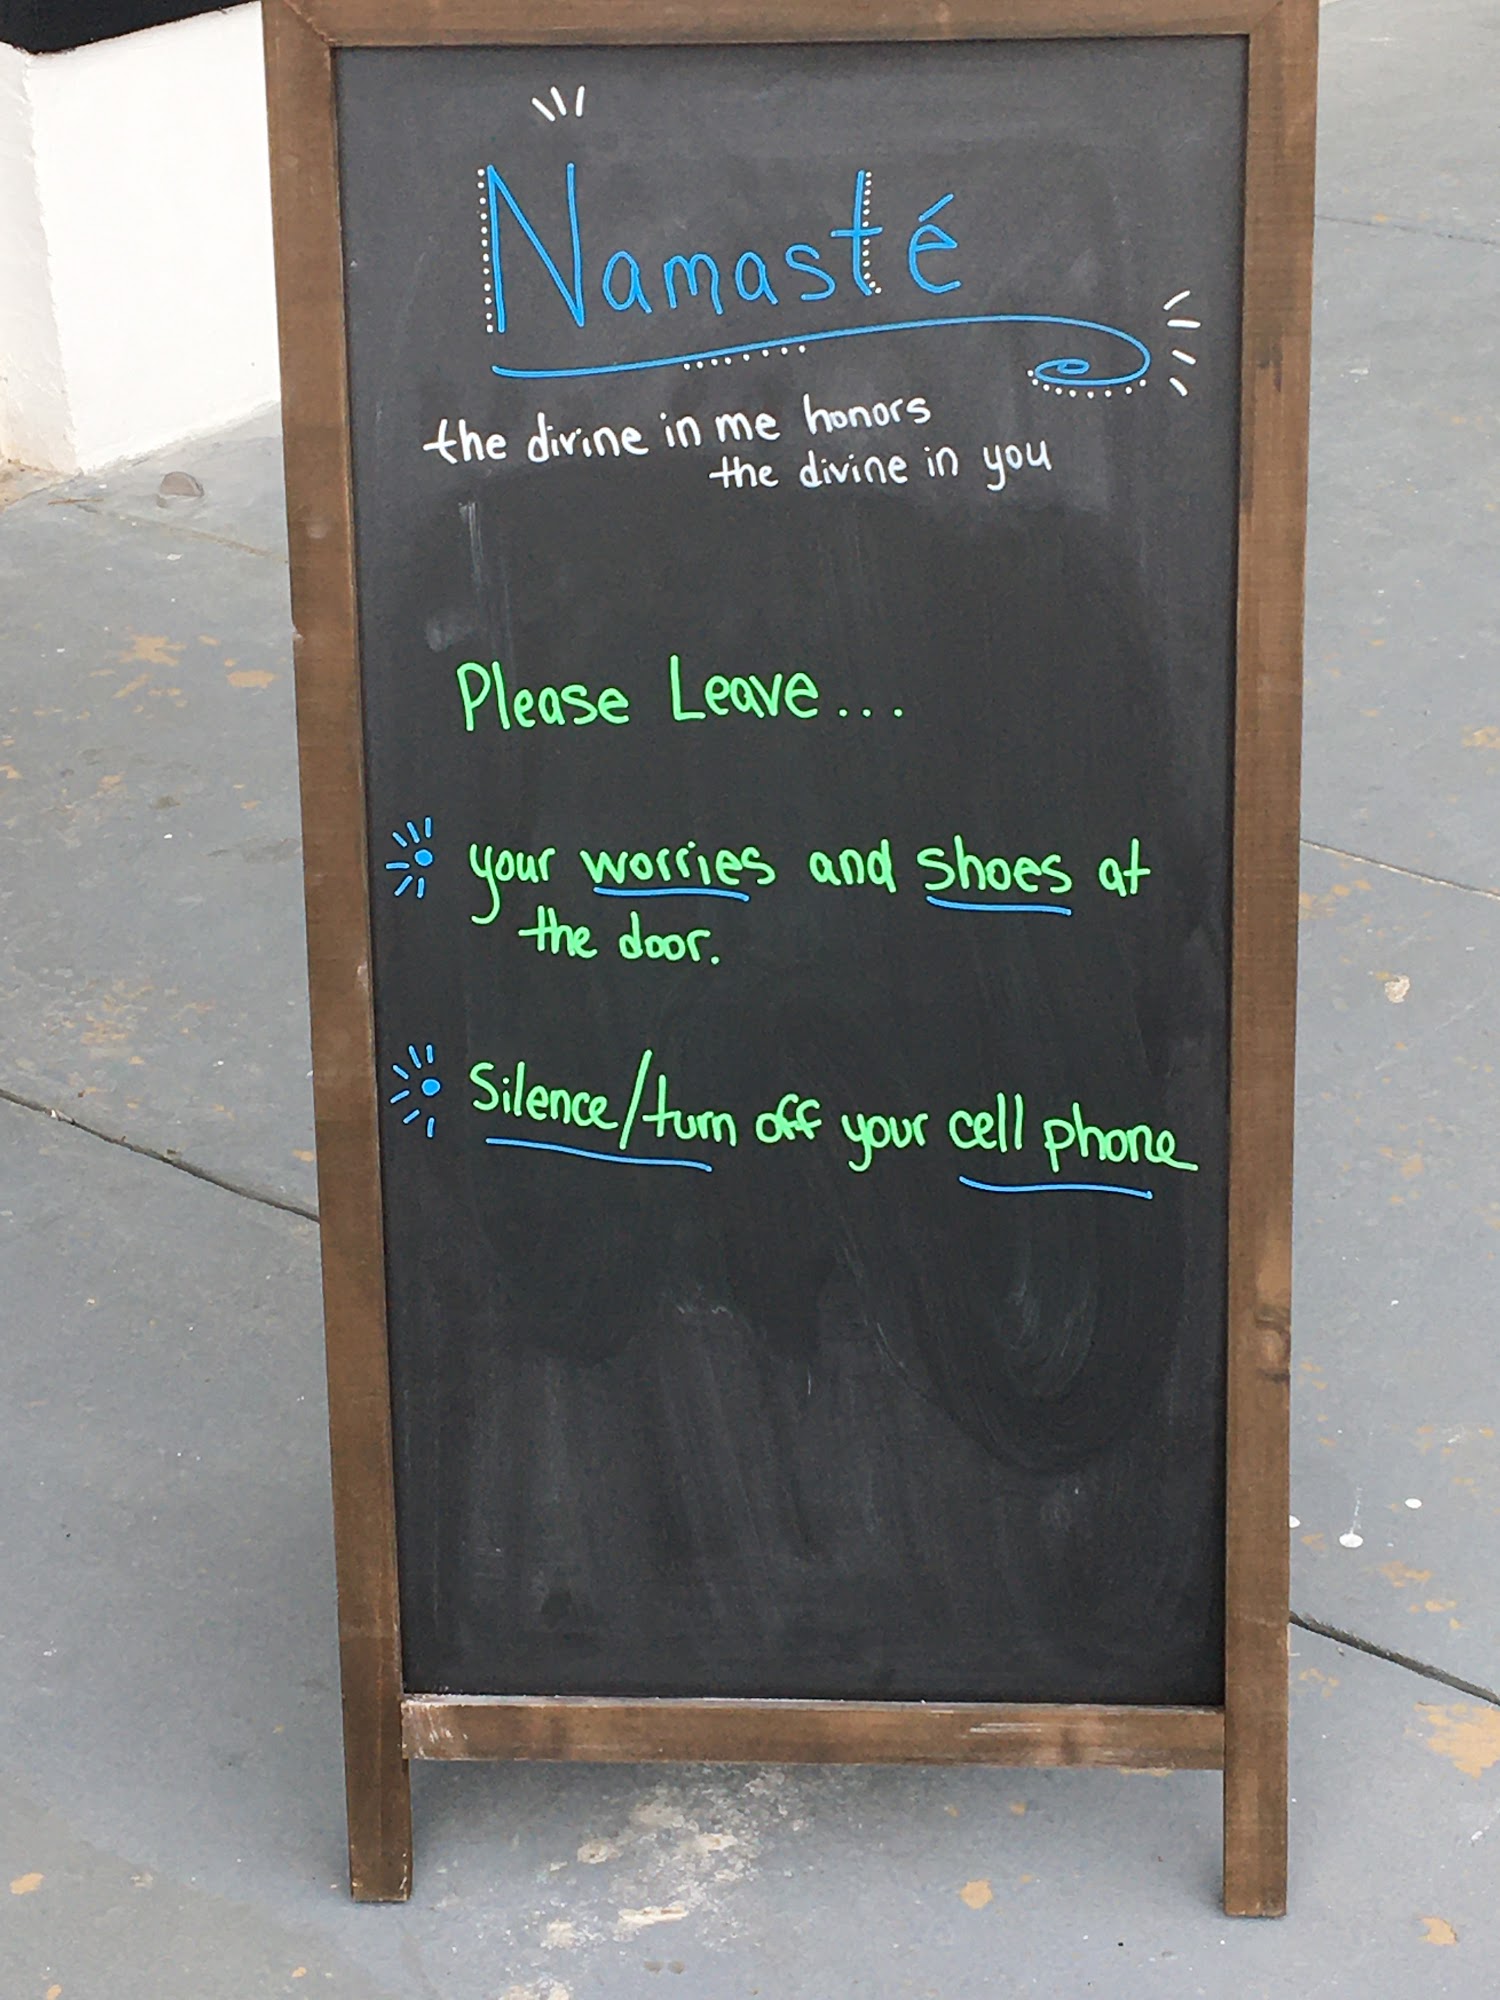 Namasté
the divine in me honors
the divine in you
Please Leave...
your worries and shoes at
the door.
Silence/turn off your cell phone